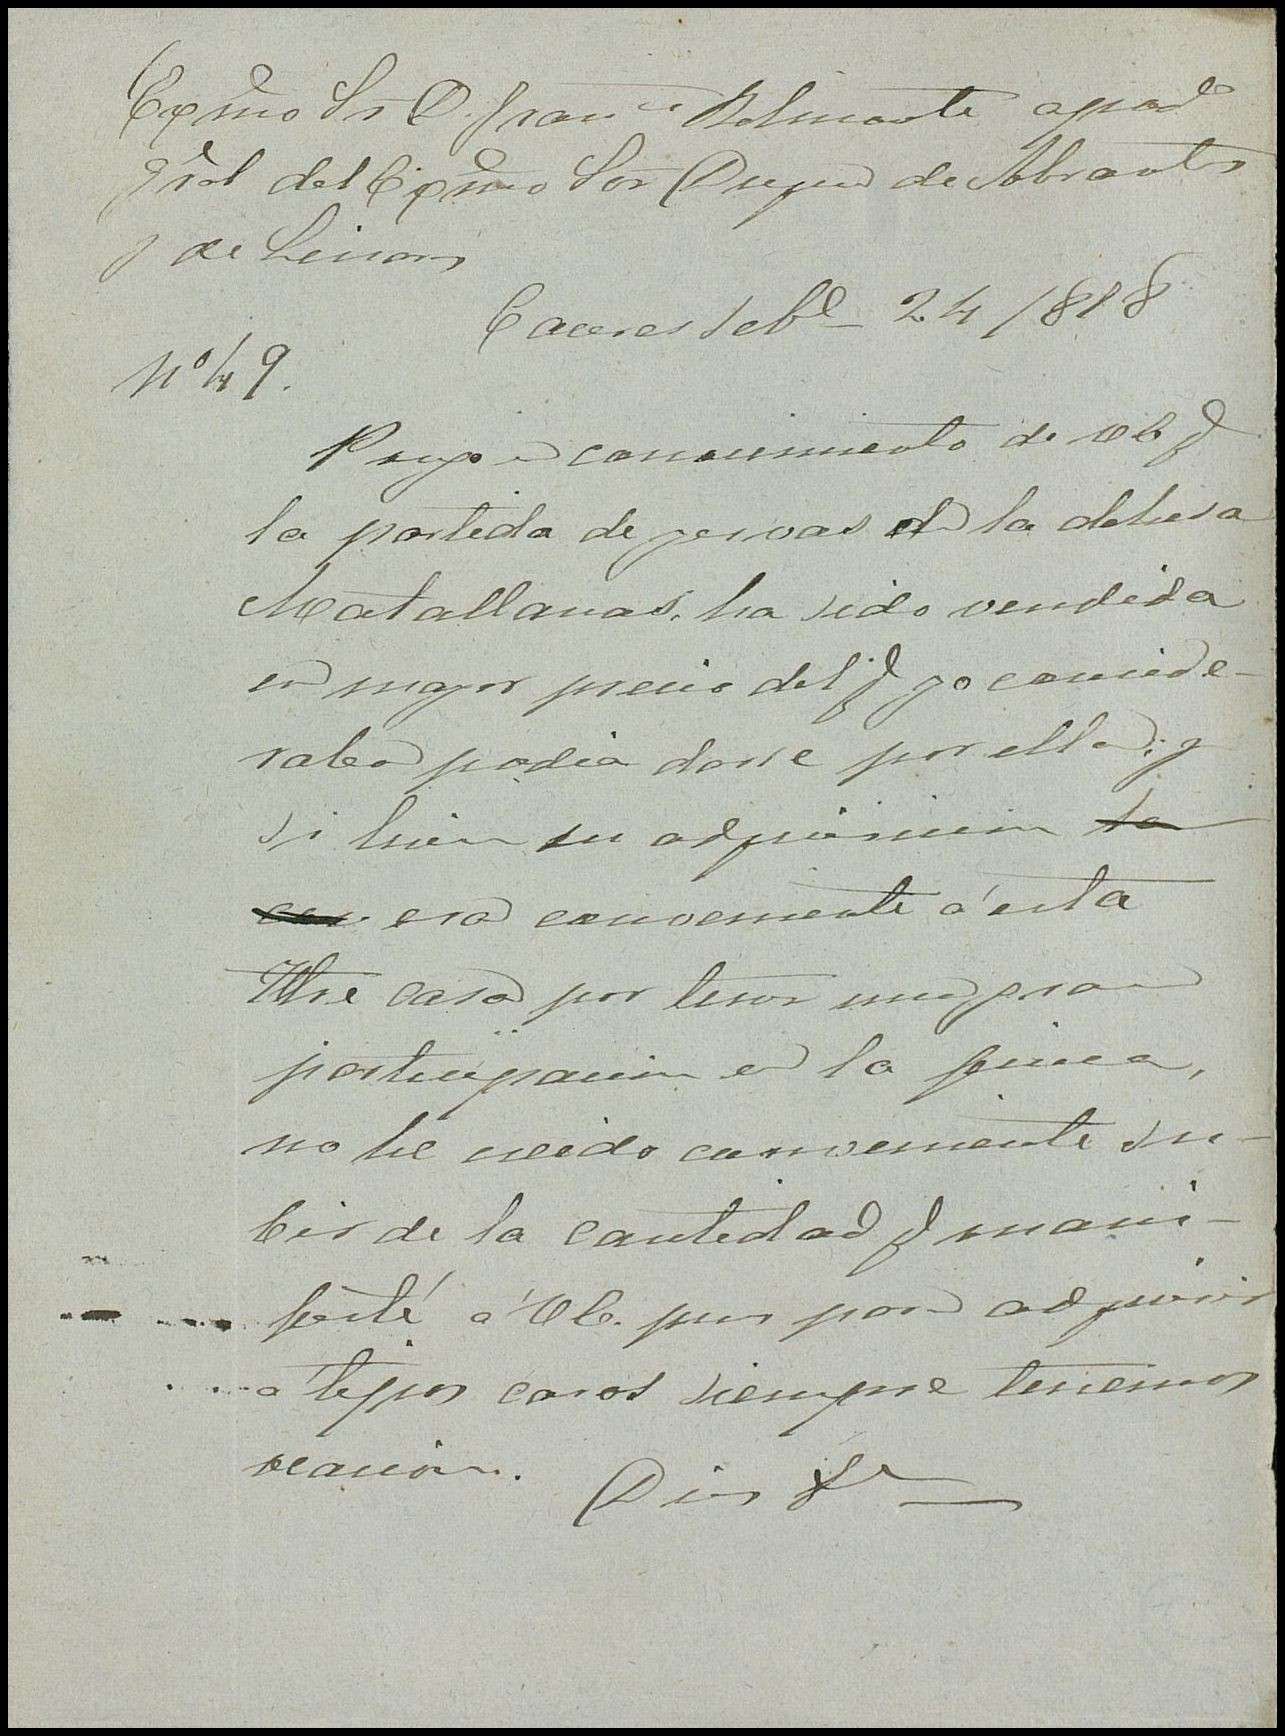 Exmo Sr D. Franco Belmonte apodo
gral del Exmo Sor Duque de Abrantes
y de Linares
Caceres Feb 24/1878
No 49.
Pongo en conocimiento de Vd q
la partida de yervas de la dehesa
Matallanas, ha sido vendida
en mayor precio del q yo conside-
raba podia darse por ella; y
si bien su adquisicion
era conveniente á esta
Iltre casa por tener una gran
participacion en la finca,
no he creido conveniente su-
bir de la cantidad q mani-
festé á Vd. pues para adquirir
á tipos caros siempre tenemos
ocasion.
Dios &a